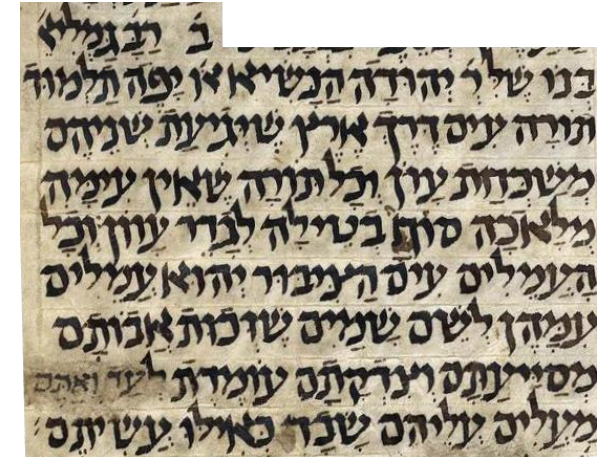 ב רבן גמליא
בנו שלר יהודה הנשיא או יפה תלמוד
תורה עים דרך ארץ שיגיעת שניהם
משכחת עון וכל תורה שאין עימה
מלאכה סופה בטילה לגדר עוון וכל
העמלים עים הציבור יהוא עמילים
עמהן לשם שמים שזכות אבותם
מסייעתם וצדקתם עומדת לעד ואתם
מעלים עליהם שכר כאילו עשיתם